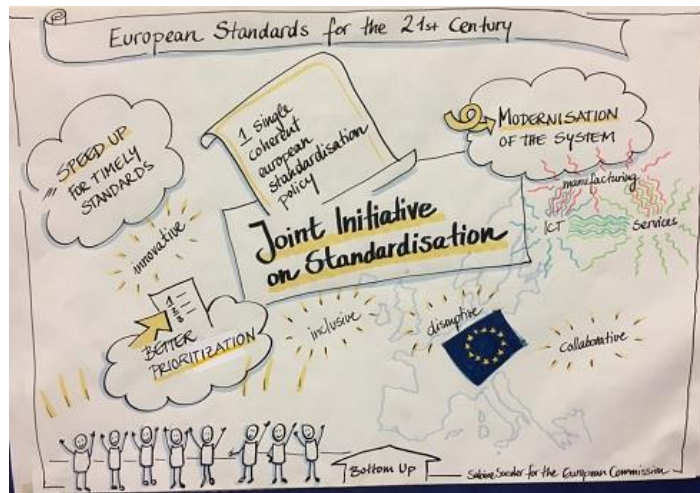 European Standards for the 21st Century
SPEED UP
FOR TIMELY
STANDARDS
1 single
coherent
european
standardisation
policy
MODERNISATION
OF THE SYSTEM
manufacturing
ICT
Services
Joint Initiative
on Standardisation
innovative
1
BETTER
PRIORITIZATION
inclusive
disruptive
collaborative
Bottom Up
for the European Commission